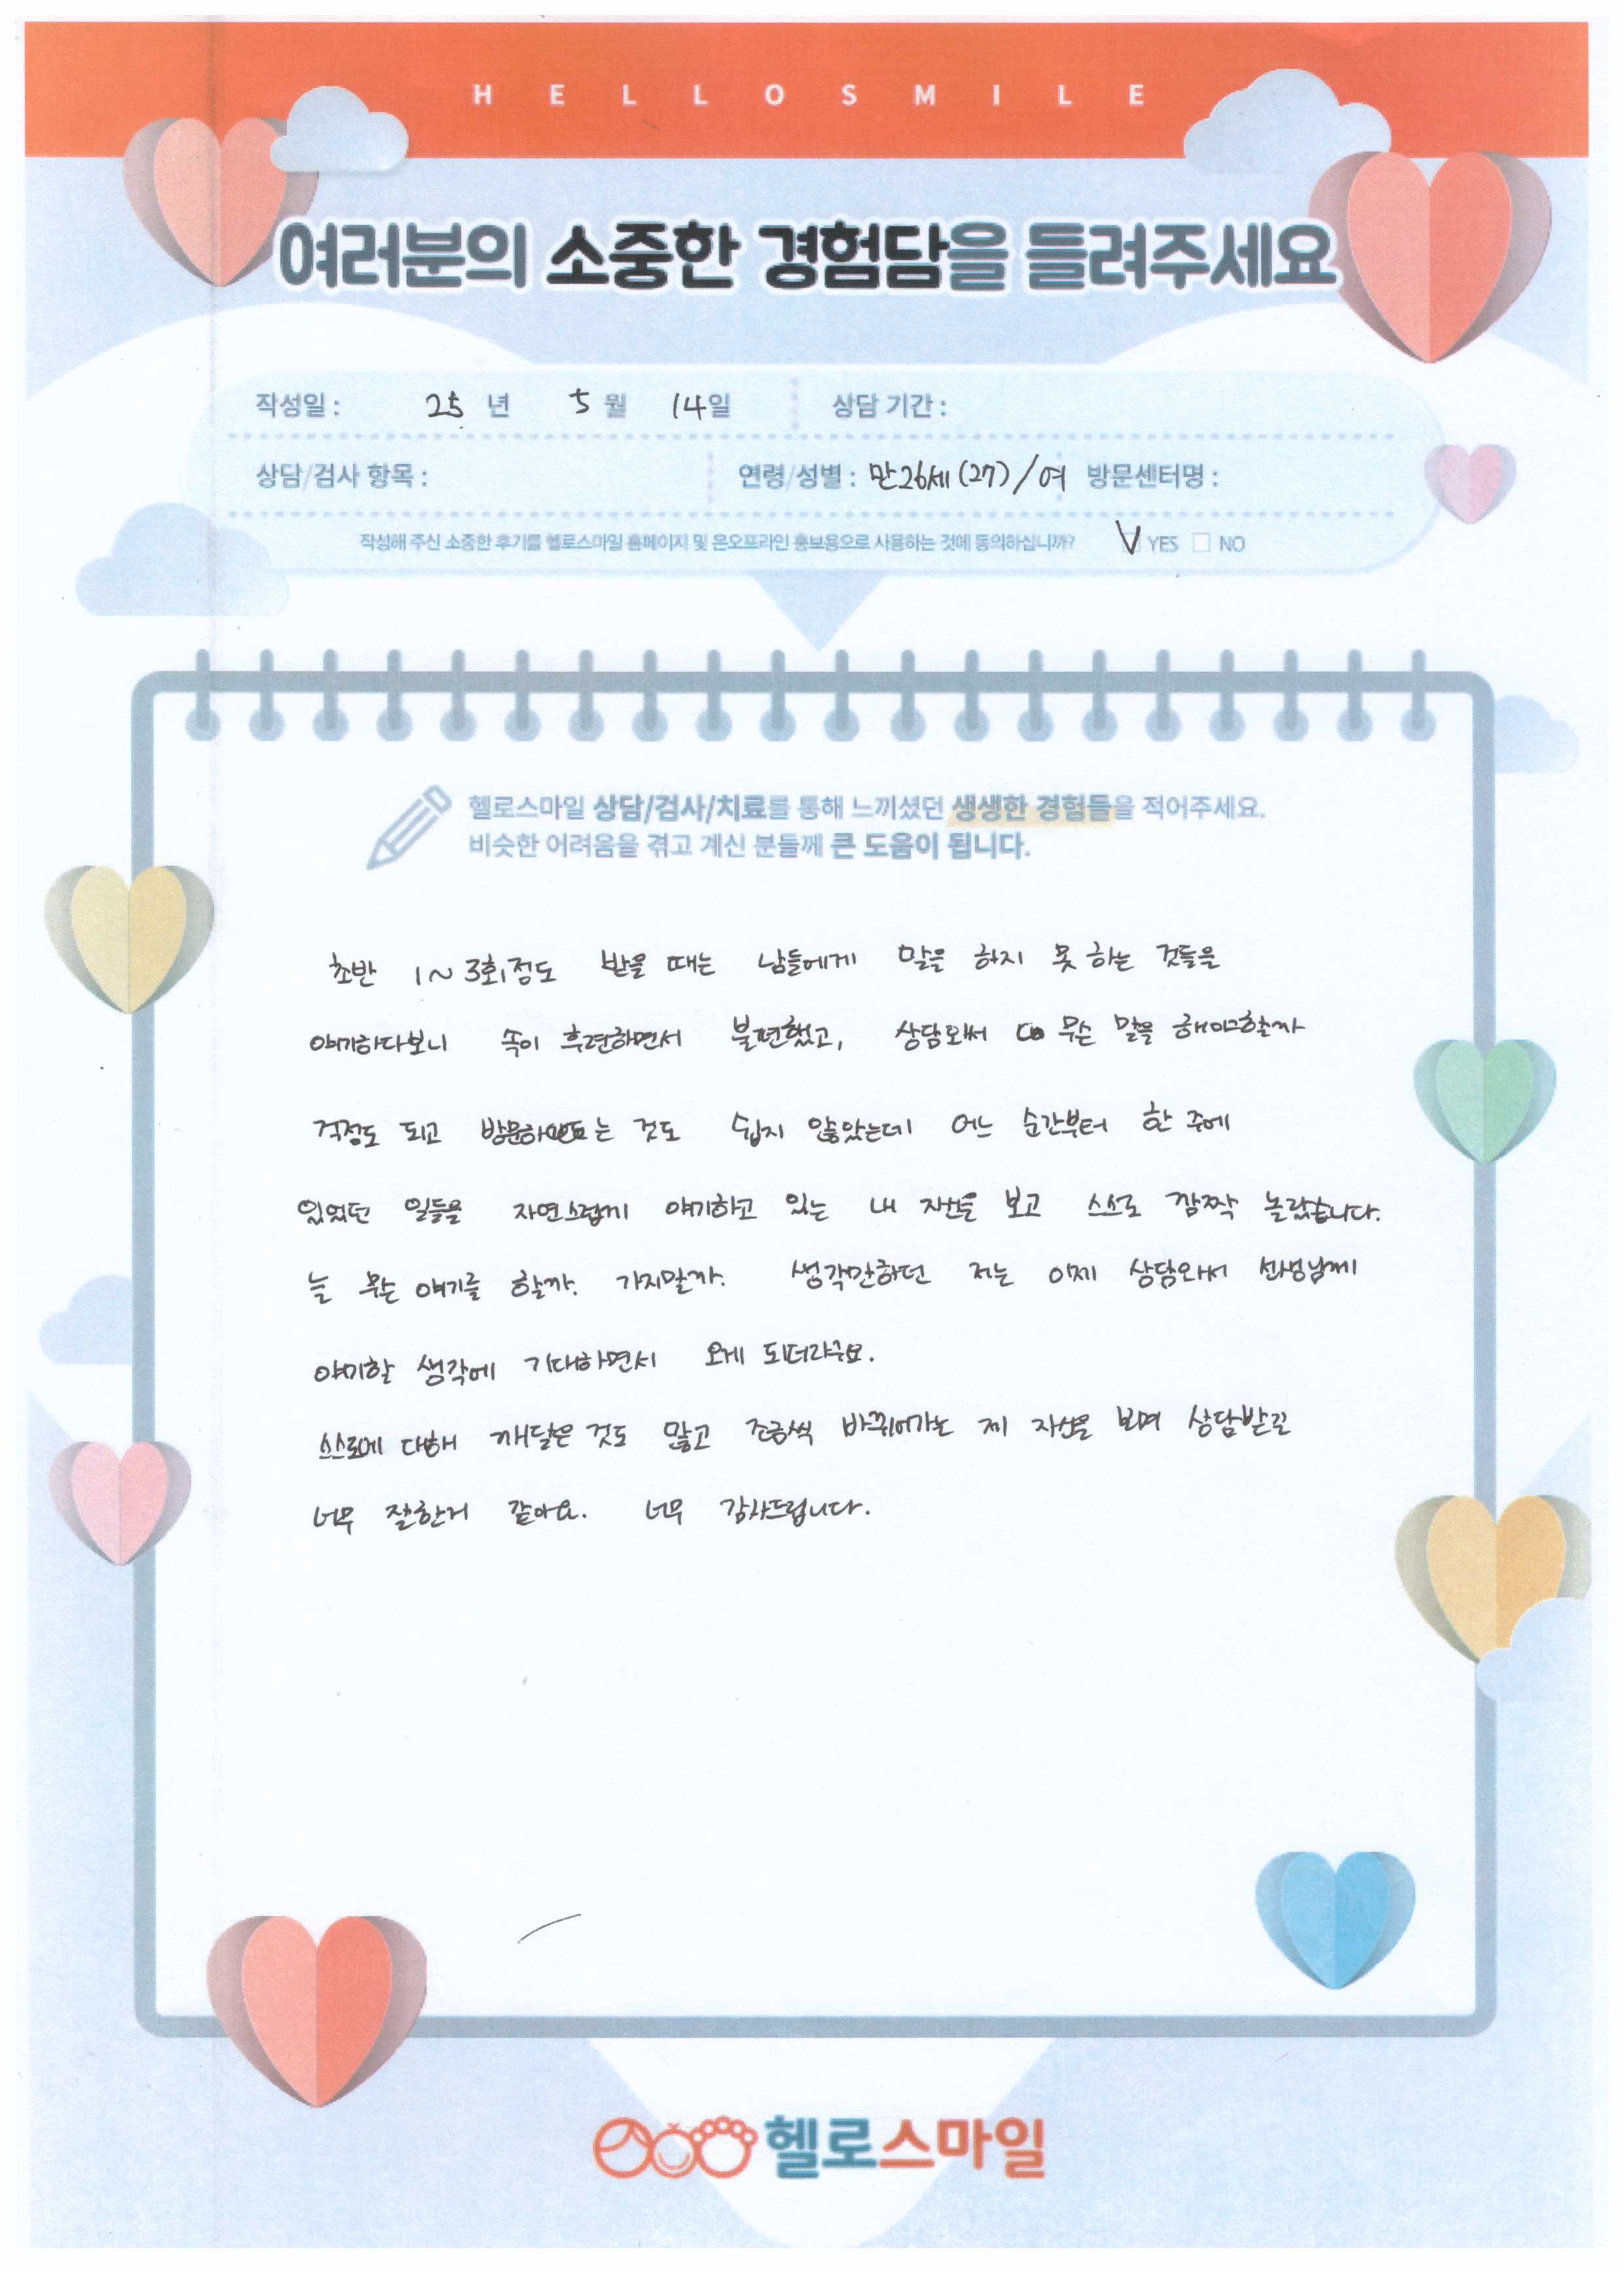 HELLOSMILE
여러분의 소중한 경험담을 들려주세요
작성일 : 25 년 5 월 14일 상담 기간 :
상담/검사 항목 : 연령/성별 : 만26세 (27) / 여 방문센터명 :
작성해 주신 소중한 후기를 헬로스마일 홈페이지 및 온오프라인 홍보용으로 사용하는 것에 동의하십니까? V YES NO
헬로스마일 상담/검사/치료를 통해 느끼셨던 생생한 경험들을 적어주세요.
비슷한 어려움을 겪고 계신 분들께 큰 도움이 됩니다.
초반 1~3회정도 받을 때는 남들에게 말을 하지 못 하는 것들을
얘기하다보니 속이 후련하면서 불편했고, 상담와서 무슨 말을 해야할까
걱정도 되고 것도 쉽지 않았는데 어느 순간부터 한 주에
있었던 일들을 자연스럽게 얘기하고 있는 내 자신을 보고 스스로 깜짝 놀랐습니다.
늘 무슨 얘기를 할까. 가지말까. 생각만하던 저는 이제 상담와서 선생님께
얘기할 생각에 기대하면서 오게 되더라구요.
스스로에 대해 깨달은 것도 많고 조금씩 바뀌어가는 제 자신을 보며 상담받길
너무 잘한거 같아요. 너무 감사드립니다.
헬로스마일